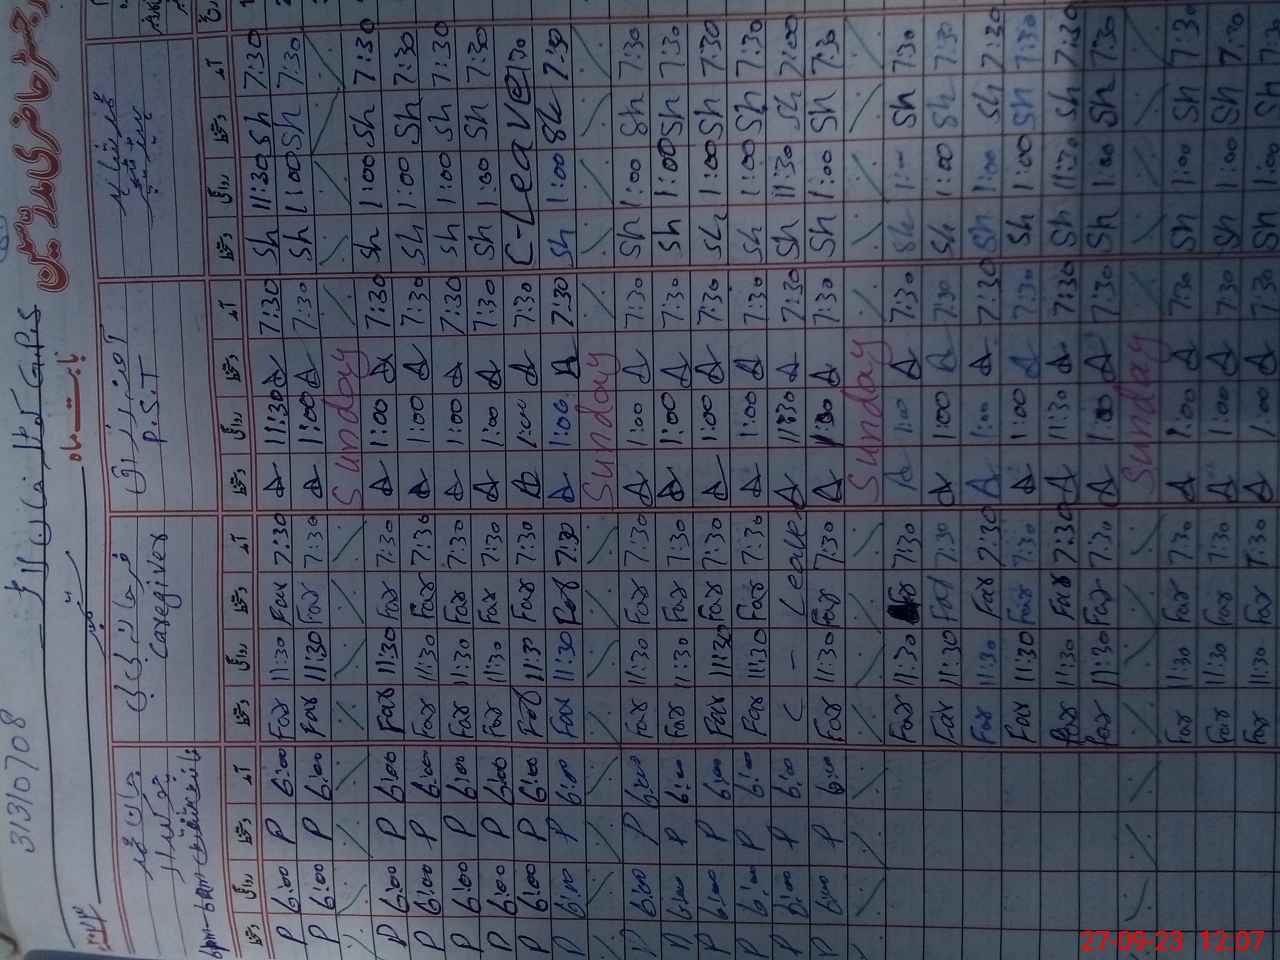 31310708
G.P.S
رجسٹر حاضری مدرسین
بابت ماہ
Caregiver
P.S.T
دستخط روانگی دستخط آمد دستخط روانگی دستخط آمد دستخط روانگی دستخط آمد دستخط روانگی دستخط آمد
P 6:00 P 6:00 Far 11:30 Far 7:30 A 11:30 A 7:30 Sh 11:30 Sh 7:30
P 6:00 P 6:00 Far 11:30 Far 7:30 A 1:00 A 7:30 Sh 1:00 Sh 7:30
Sunday
P 6:00 P 6:00 Far 11:30 Far 7:30 A 1:00 A 7:30 Sh 1:00 Sh 7:30
P 6:00 P 6:00 Far 11:30 Far 7:30 A 1:00 A 7:30 Sh 1:00 Sh 7:30
P 6:00 P 6:00 Far 11:30 Far 7:30 A 1:00 A 7:30 Sh 1:00 Sh 7:30
P 6:00 P 6:00 Far 11:30 Far 7:30 A 1:00 A 7:30 Sh 1:00 Sh 7:30
P 6:00 P 6:00 Far 11:30 Far 7:30 A 1:00 A 7:30 C-Leave
P 6:00 P 6:00 Far 11:30 Far 7:30 A 1:00 A 7:30 Sh 1:00 Sh 7:30
Sunday
P 6:00 P 6:00 Far 11:30 Far 7:30 A 1:00 A 7:30 Sh 1:00 Sh 7:30
P 6:00 P 6:00 Far 11:30 Far 7:30 A 1:00 A 7:30 Sh 1:00 Sh 7:30
P 6:00 P 6:00 Far 11:30 Far 7:30 A 1:00 A 7:30 Sh 1:00 Sh 7:30
P 6:00 P 6:00 Far 11:30 Far 7:30 A 1:00 A 7:30 Sh 1:00 Sh 7:30
P 6:00 P 6:00 C - Leave A 11:30 A 7:30 Sh 11:30 Sh 7:00
P 6:00 P 6:00 Far 11:30 Far 7:30 A 1:00 A 7:30 Sh 1:00 Sh 7:30
Sunday
Far 11:30 Far 7:30 A 1:00 A 7:30 Sh 1:00 Sh 7:30
Far 11:30 Far 7:30 A 1:00 A 7:30 Sh 1:00 Sh 7:30
Far 11:30 Far 7:30 A 1:00 A 7:30 Sh 1:00 Sh 7:30
Far 11:30 Far 7:30 A 1:00 A 7:30 Sh 1:00 Sh 7:30
Far 11:30 Far 7:30 A 11:30 A 7:30 Sh 11:30 Sh 7:30
Far 11:30 Far 7:30 A 1:00 A 7:30 Sh 1:00 Sh 7:30
Sunday
Far 11:30 Far 7:30 A 1:00 A 7:30 Sh 1:00 Sh 7:30
Far 11:30 Far 7:30 A 1:00 A 7:30 Sh 1:00 Sh 7:30
Far 11:30 Far 7:30 A 1:00 A 7:30 Sh 1:00 Sh 7:30
27-09-23 12:07